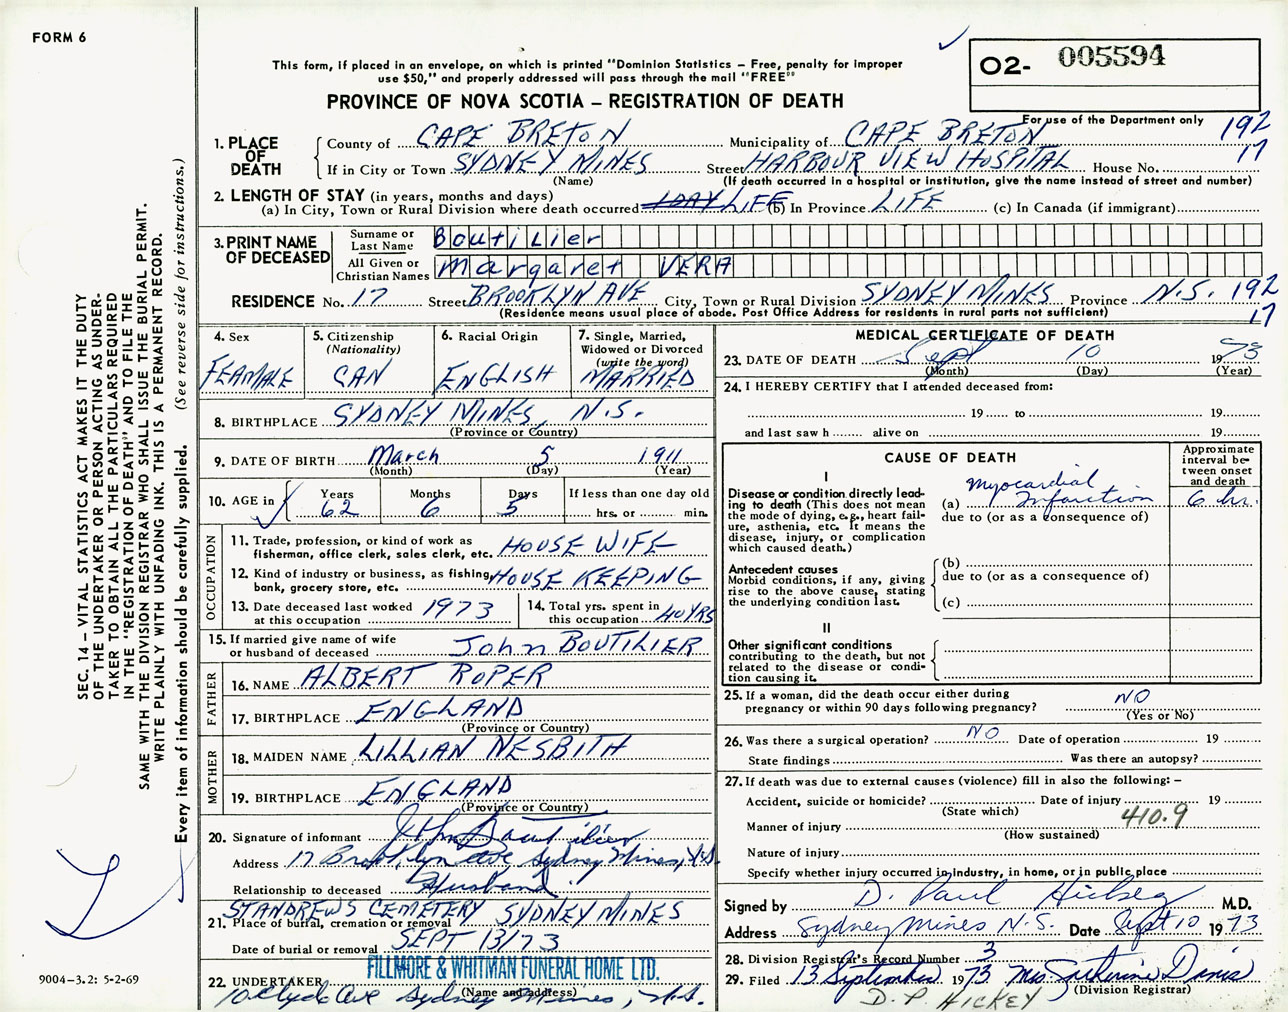 FORM 6
This form, if placed in an envelope, on which is printed "Dominion Statistics – Free, penalty for improper
use $50," and properly addressed will pass through the mail "FREE"
PROVINCE OF NOVA SCOTIA – REGISTRATION OF DEATH
O2- 005594
For use of the Department only
192
17
1. PLACE OF DEATH
County of CAPE BRETON Municipality of CAPE BRETON
If in City or Town SYDNEY MINES Street HARBOUR VIEW HOSPITAL House No.
(Name) (If death occurred in a hospital or institution, give the name instead of street and number)
2. LENGTH OF STAY (in years, months and days)
(a) In City, Town or Rural Division where death occurred 1 DAY LIFE (b) In Province LIFE (c) In Canada (if immigrant)
3. PRINT NAME OF DECEASED
Surname or Last Name Boutilier
All Given or Christian Names Margaret VERA
RESIDENCE No. 17 Street BROOKLYN AVE City, Town or Rural Division SYDNEY MINES Province N.S. 192
17
(Residence means usual place of abode. Post Office Address for residents in rural parts not sufficient)
4. Sex FEAMALE
5. Citizenship (Nationality) CAN
6. Racial Origin ENGLISH
7. Single, Married, Widowed or Divorced (write the word) MARRIED
8. BIRTHPLACE SYDNEY MINES, N.S.
(Province or Country)
9. DATE OF BIRTH March 5 1911
(Month) (Day) (Year)
10. AGE in Years 62 Months 6 Days 5 If less than one day old
hrs. or min.
OCCUPATION
11. Trade, profession, or kind of work as
fisherman, office clerk, sales clerk, etc. HOUSE WIFE
12. Kind of industry or business, as fishing,
bank, grocery store, etc. HOUSE KEEPING
13. Date deceased last worked
at this occupation 1973
14. Total yrs. spent in
this occupation 40 YRS
15. If married give name of wife
or husband of deceased John BOUTILIER
FATHER
16. NAME ALBERT ROPER
17. BIRTHPLACE ENGLAND
(Province or Country)
MOTHER
18. MAIDEN NAME LILLIAN NESBITH
19. BIRTHPLACE ENGLAND
(Province or Country)
20. Signature of informant John Boutilier
Address 17 Brooklyn Ave Sydney Mines, N.S.
Relationship to deceased Husband
ST ANDREWS CEMETERY SYDNEY MINES
21. Place of burial, cremation or removal
Date of burial or removal SEPT 13/73
FILLMORE & WHITMAN FUNERAL HOME LTD.
22. UNDERTAKER
(Name and address)
10 Clyde Ave Sydney Mines, N.S.
MEDICAL CERTIFICATE OF DEATH
23. DATE OF DEATH Sept 10 1973
(Month) (Day) (Year)
24. I HEREBY CERTIFY that I attended deceased from:
19 to 19
and last saw h alive on 19
CAUSE OF DEATH
Approximate interval between onset and death
I
Disease or condition directly leading to death (This does not mean the mode of dying, e.g., heart failure, asthenia, etc. It means the disease, injury, or complication which caused death.)
(a) Myocardial Infarction 6 hr.
due to (or as a consequence of)
Antecedent causes
Morbid conditions, if any, giving rise to the above cause, stating the underlying condition last.
(b)
due to (or as a consequence of)
(c)
II
Other significant conditions
contributing to the death, but not related to the disease or condition causing it.
25. If a woman, did the death occur either during
pregnancy or within 90 days following pregnancy? NO
(Yes or No)
26. Was there a surgical operation? NO Date of operation 19
State findings Was there an autopsy?
27. If death was due to external causes (violence) fill in also the following: –
Accident, suicide or homicide? Date of injury 19
(State which)
Manner of injury 410.9
(How sustained)
Nature of injury
Specify whether injury occurred in industry, in home, or in public place
Signed by D. Paul Hickey M.D.
Address Sydney Mines N.S. Date Sept 10 1973
28. Division Registrar's Record Number 3
29. Filed 13 September 1973 Mrs. Katherine Davis
(Division Registrar)
D. P. HICKEY
SEC. 14 – VITAL STATISTICS ACT MAKES IT THE DUTY
OF THE UNDERTAKER OR PERSON ACTING AS UNDER-
TAKER TO OBTAIN ALL THE PARTICULARS REQUIRED
IN THE "REGISTRATION OF DEATH" AND TO FILE THE
SAME WITH THE DIVISION REGISTRAR WHO SHALL ISSUE THE BURIAL PERMIT.
WRITE PLAINLY WITH UNFADING INK. THIS IS A PERMANENT RECORD.
Every item of information should be carefully supplied. (See reverse side for instructions.)
9004-3.2: 5-2-69